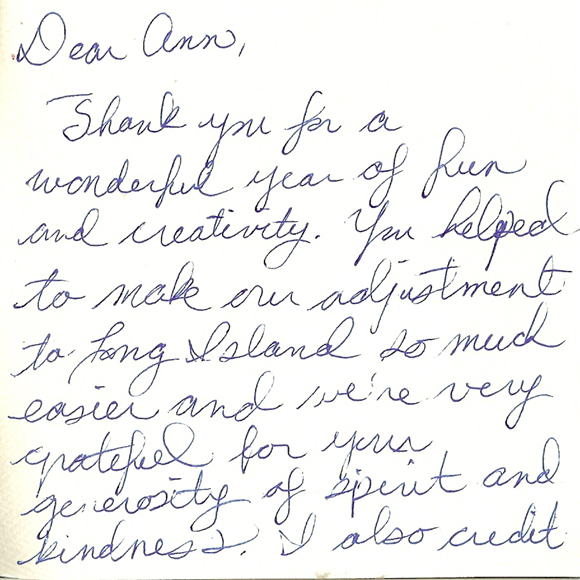 Dear Ann,
Thank you for a
wonderful year of fun
and creativity. You helped
to make our adjustment
to Long Island so much
easier and we're very
grateful for your
generosity of spirit and
kindness. I also credit